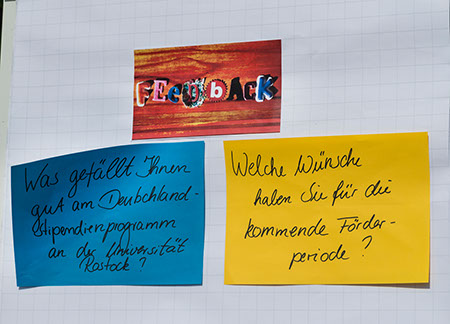 FEEdbACK
Was gefällt Ihnen
gut am Deutschland-
stipendienprogramm
an der Universität
Rostock?
Welche Wünsche
haben Sie für die
kommende Förder-
periode?